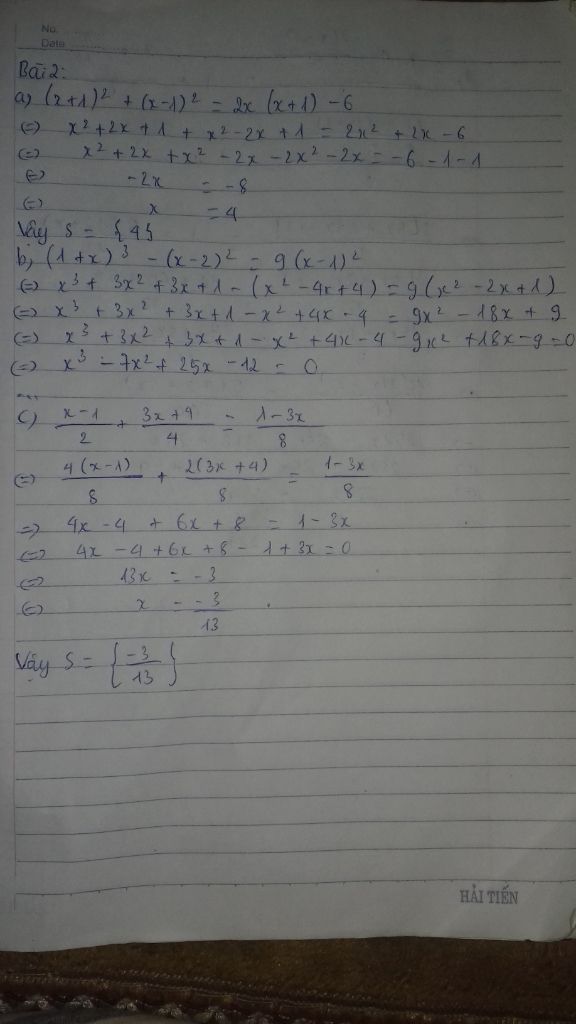 No.
Date
Bài 2:
a) (x+1)² + (x-1)² = 2x (x+1) - 6
(=) x² + 2x + 1 + x² - 2x + 1 = 2x² + 2x - 6
(=) x² + 2x + x² - 2x - 2x² - 2x = -6 - 1 - 1
(=) -2x = -8
(=) x = 4
Vậy S = {4}
b, (1+x)³ - (x-2)² = 9(x-1)²
(=) x³ + 3x² + 3x + 1 - (x² - 4x + 4) = 9(x² - 2x + 1)
(=) x³ + 3x² + 3x + 1 - x² + 4x - 4 = 9x² - 18x + 9
(=) x³ + 3x² + 3x + 1 - x² + 4x - 4 - 9x² + 18x - 9 = 0
(=) x³ - 7x² + 25x - 12 = 0
...
c) (x-1)/2 + (3x+4)/4 = (1-3x)/8
(=) 4(x-1)/8 + 2(3x+4)/8 = (1-3x)/8
=) 4x - 4 + 6x + 8 = 1 - 3x
(=) 4x - 4 + 6x + 8 - 1 + 3x = 0
(=) 13x = -3
(=) x = -3/13
Vậy S = {-3/13}
HẢI TIẾN